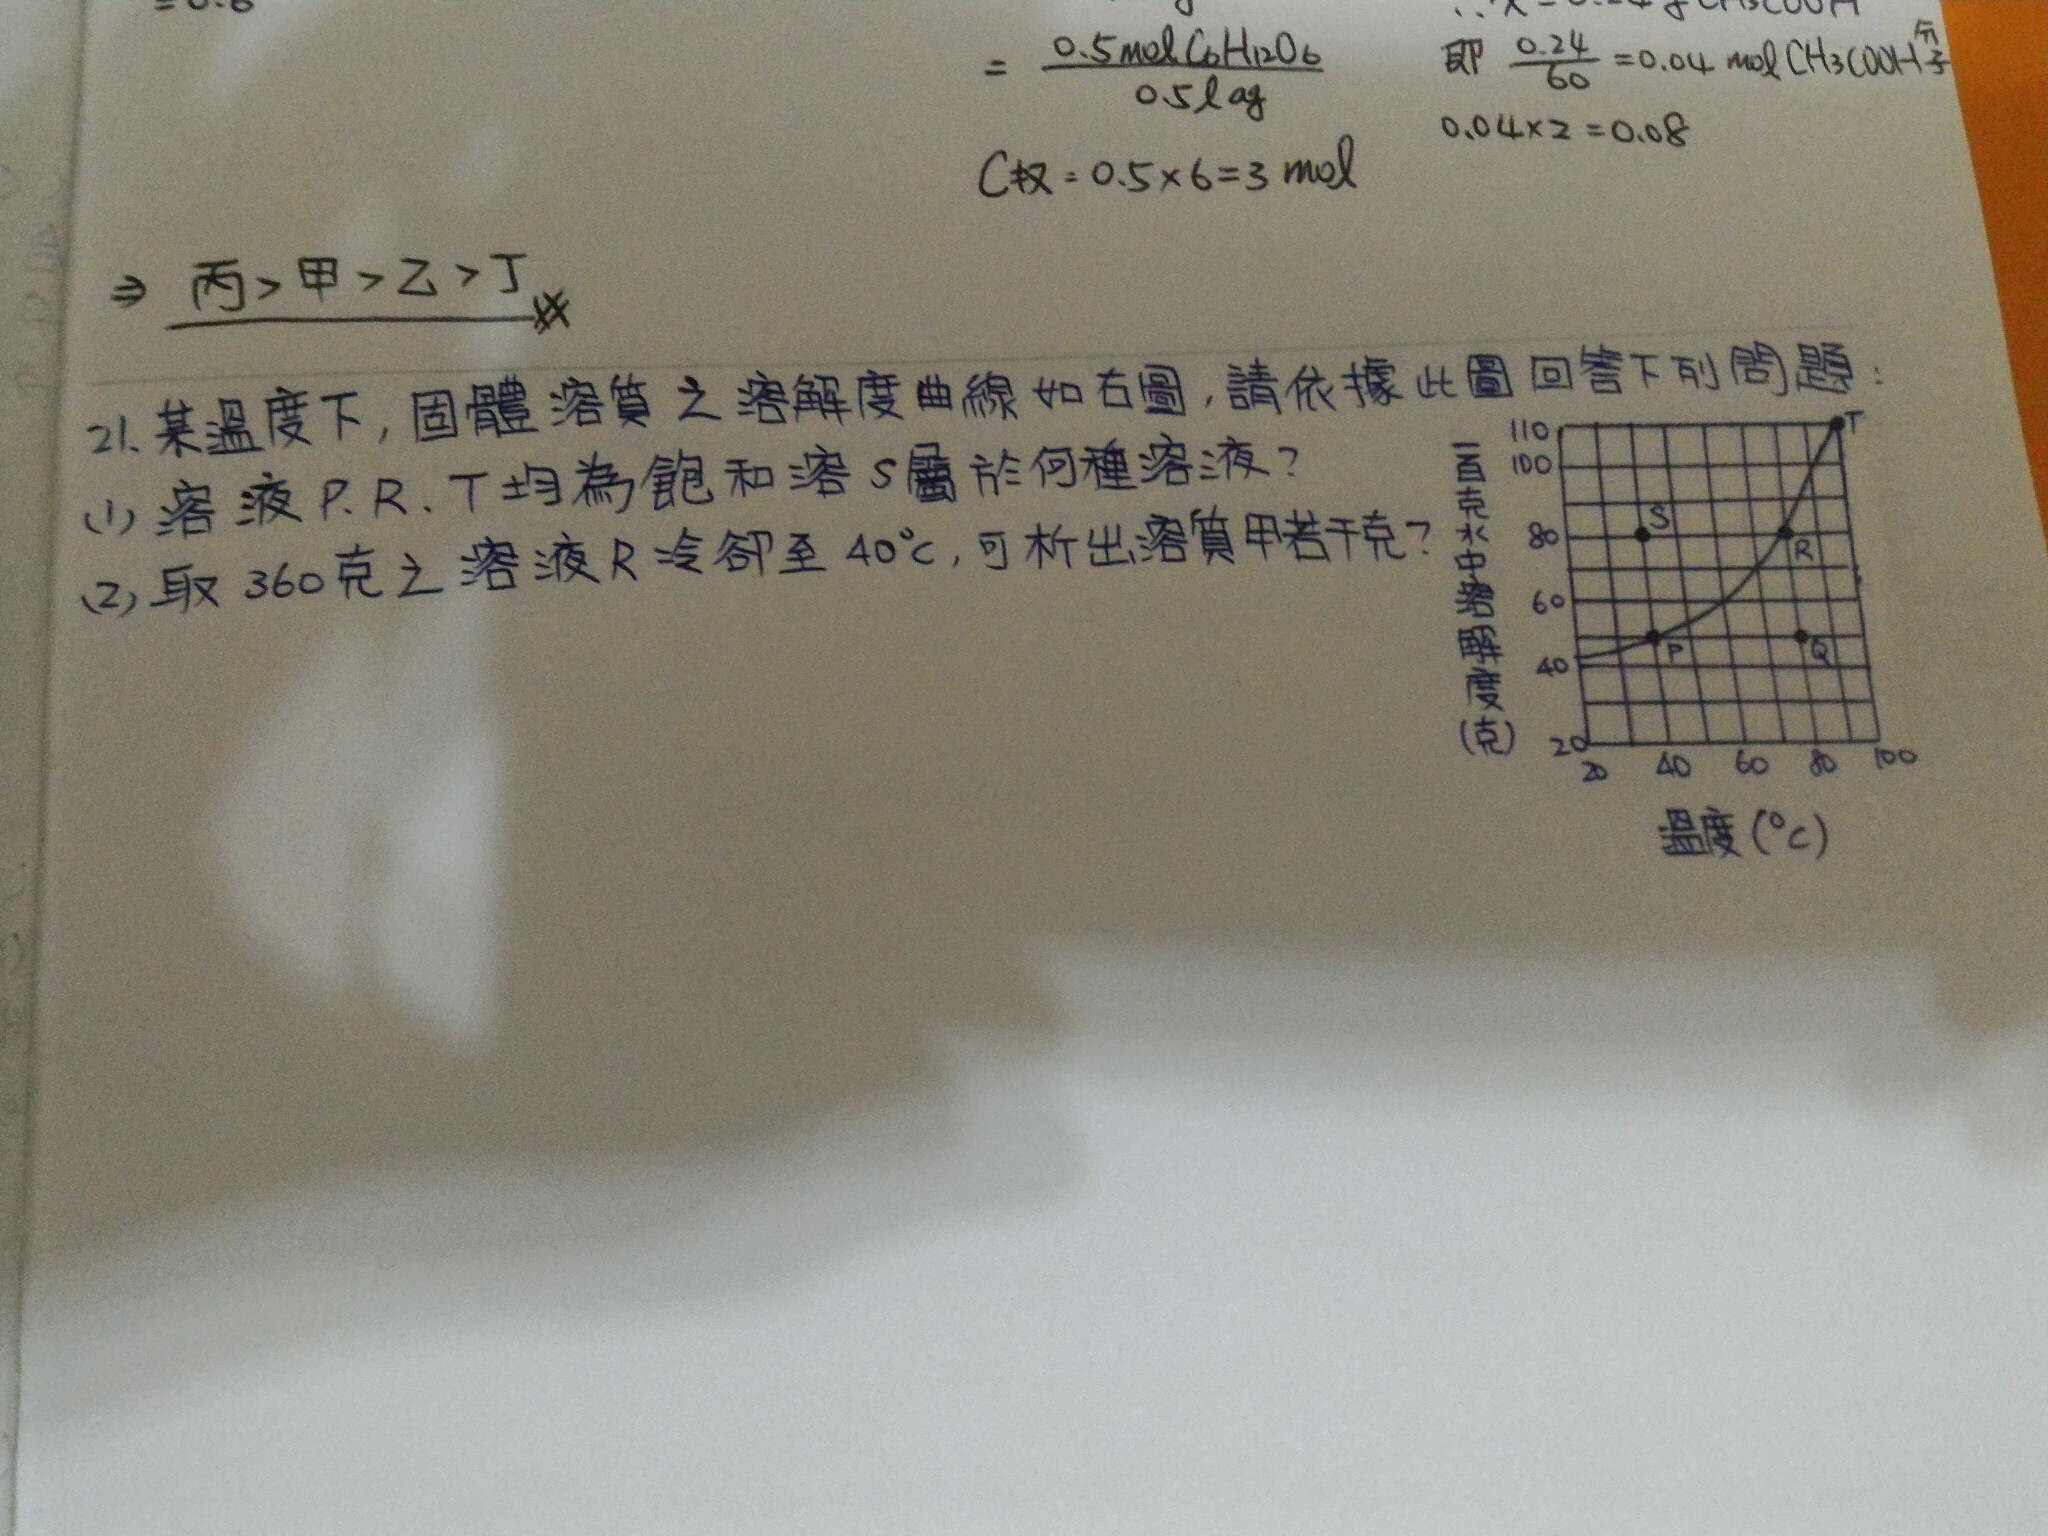 = 0.5mol C6H12O6 / 0.5lag
即 0.24 / 60 = 0.04 mol CH3COOH分子
0.04×2=0.08
C杈=0.5×6=3 mol
⇒ 丙>甲>乙>丁
21.某溫度下,固體溶質之溶解度曲線如右圖,請依據此圖回答下列問題:
(1)溶液P.R.T均為飽和溶S屬於何種溶液?
(2)取360克之溶液R冷卻至40°C,可析出溶質甲若干克?
一百克水中溶解度(克)
110
100
80
60
40
20
T
S
R
P
Q
20 40 60 80 100
溫度(°C)